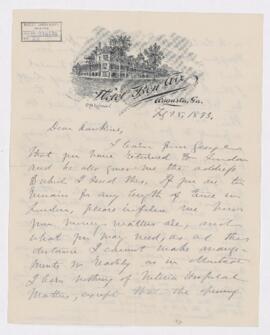 Hotel Bon Air
Augusta, Ga.
1893
Dear Hawkins,
I learn from George
that you have returned to London
and he also gave me the address
to which I send this. If you are to
remain for any length of time in
London, please inform me how
your money matters are, and
what you may need, as at this
distance I cannot make arrange-
ments so readily as in
I hear nothing of
Matters, except that the